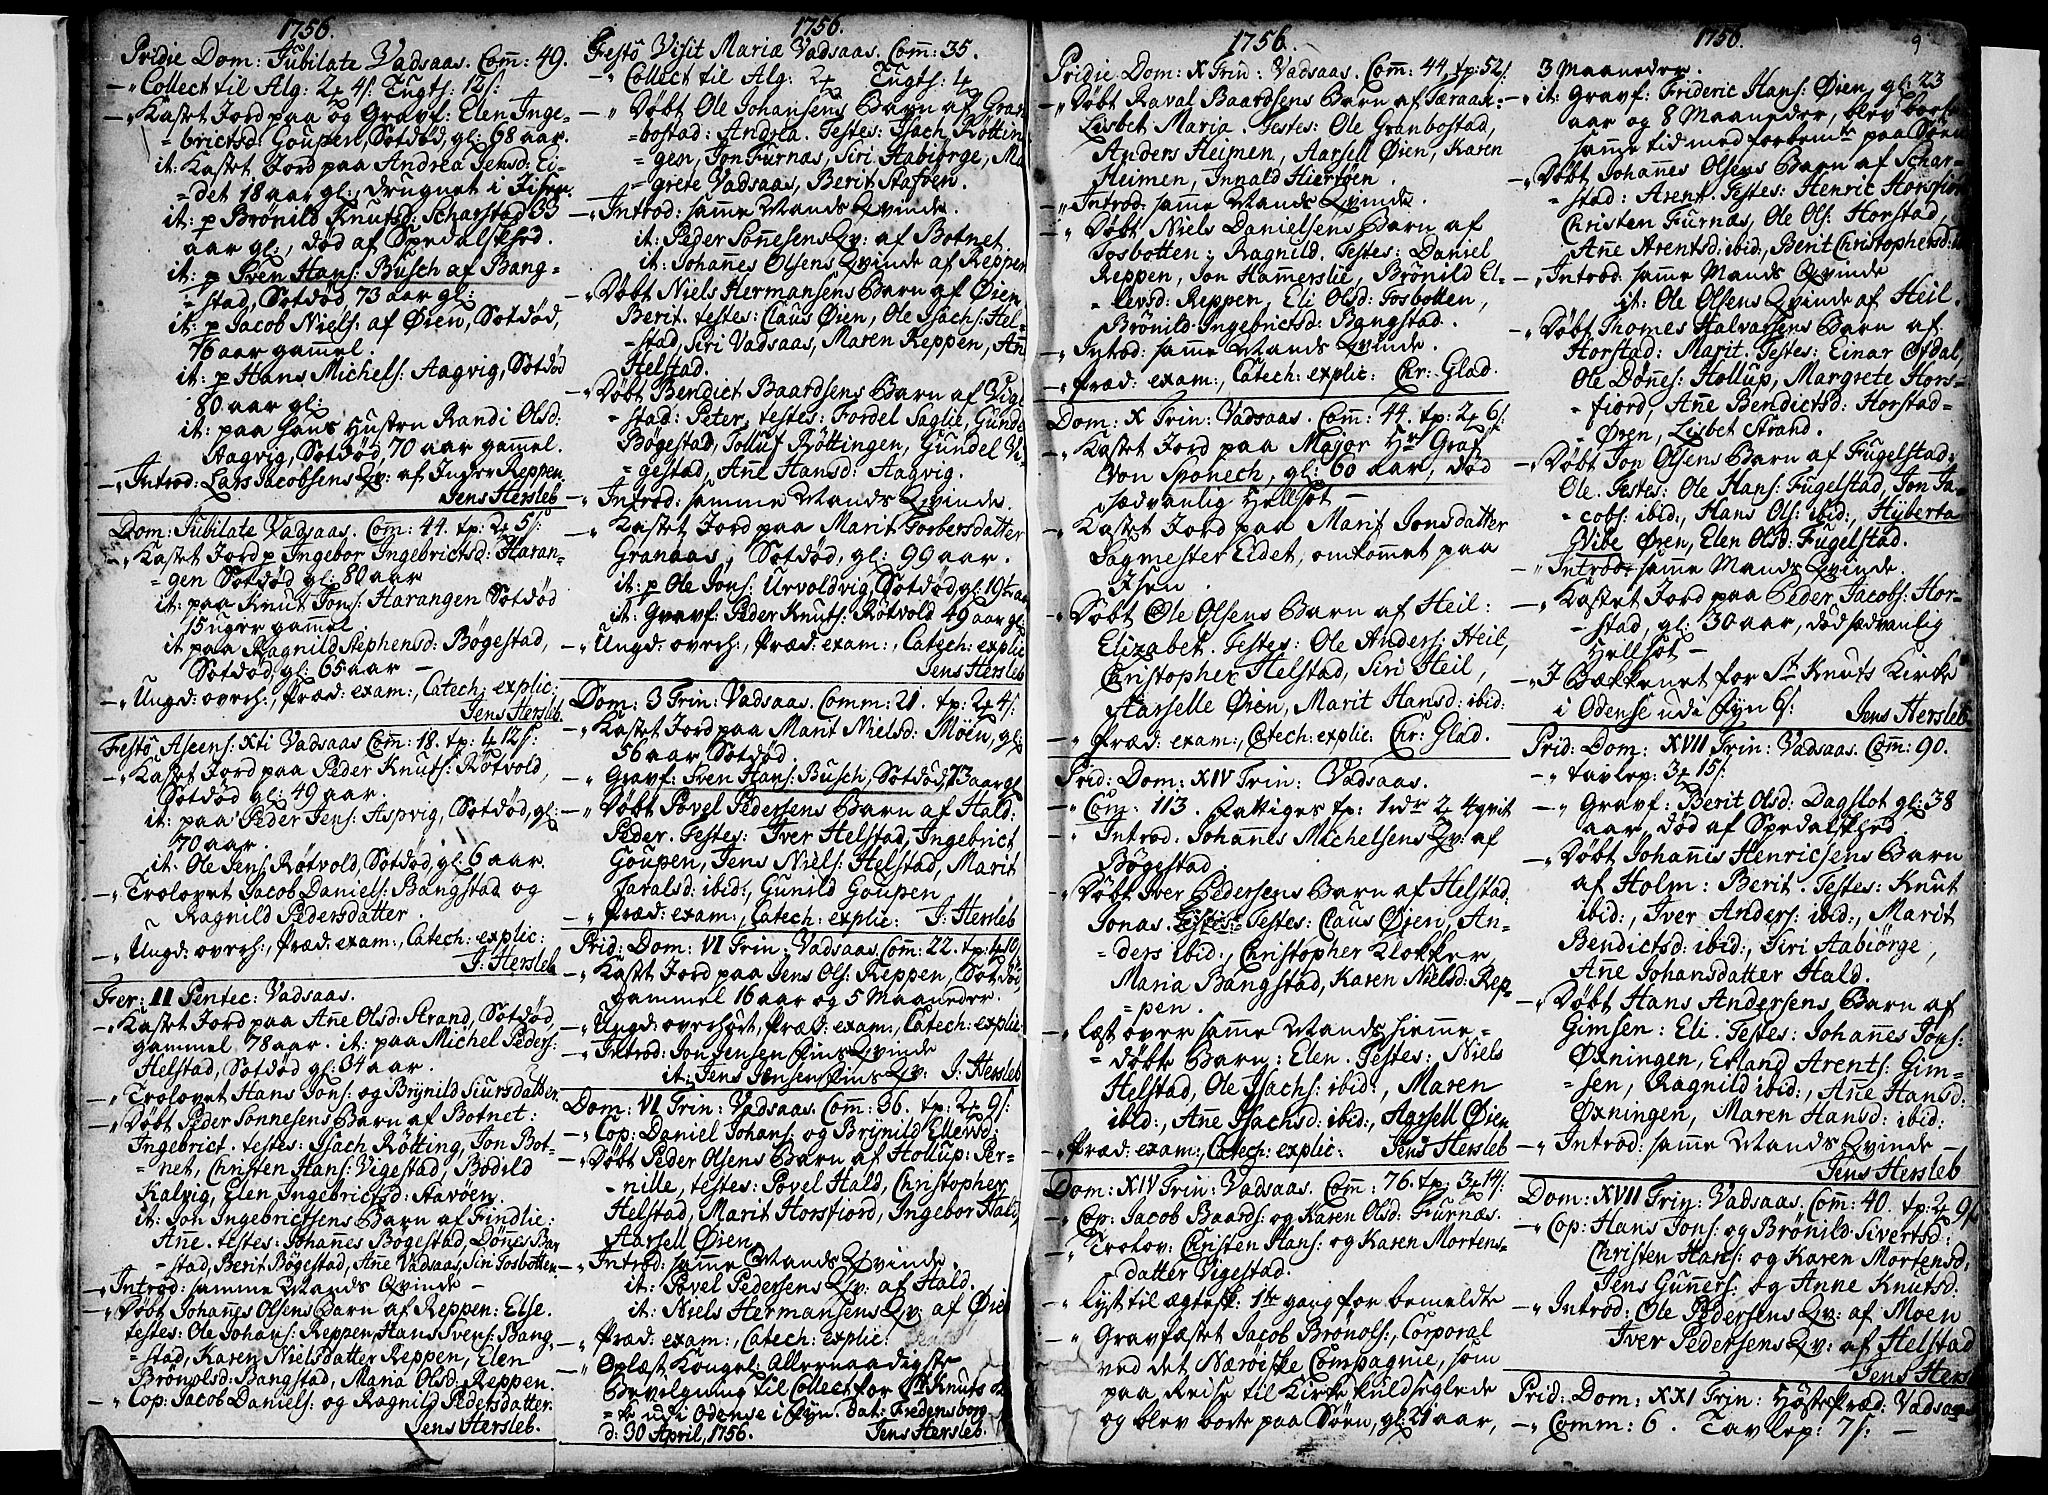 1756.
Pridie Dom: Jubilate Vadsaas. Com̄: 49.
Collect til Alg: 2 4/: Tugts: 12/:
Kastet Jord paa og Gravf: Elen Inge-
brictsd: Goupen, Sotdød, gl: 68 aar.
it: Kastet Jord paa Andrea Jensd: Ei-
det 18 aar gl:, drugnet i Iisen.
it: p Brönild Knutsd: Scharstad 33
aar gl:, død af Spedalskhed.
it: p Sven Hans: Busch af Bang-
stad, Sotdød, 73 aar gl:
it: p Jacob Niels: af Øien, Sotdød,
76 aar gammel.
it: p Hans Michels: Aagvig, Sotdød
80 aar gl:
it: paa hans Hustru Randi Olsd:
Aagvig, Sotdød, 70 aar gam̄el.
Introd: Lars Jacobsens Qv: af Inder Reppen.
Jens Hersleb
Dom: Jubilate Vadsaas. Com: 44. tp: 2 5/:
Kastet Jord p Ingebor Ingebrictsd: Haran-
gen Sotdød gl: 80 aar
it: paa Knut Jons: Harangen Sotdød
15 uger gam̄el.
it paa Ragnild Stephensd: Bögestad,
Sotdød, gl: 65 aar —
Ungd: overh:, Præd: exam:, Catech: explic:
Jens Hersleb.
Festô Ascens: Xti Vadsaas Com̄: 18. tp: 4 12/:
Kastet Jord paa Peder Knuts: Rötvold,
Sotdød gl: 49 aar.
it: paa Peder Jens: Aspvig, Sotdød, gl:
70 aar.
it: Ole Jens: Rötvold, Sotdød, gl: 6 aar.
Trolovet Jacob Daniels: Bangstad og
Ragnild Pedersdatter.
Ungd: overh:, Præd: exam:, Catech: explic:
J: Hersleb
Fer: II Pentec: Vadsaas.
Kastet Jord paa An̄e Olsd: Strand, Sotdød,
gammel 78 aar. it: paa Michel Peders:
Helstad, Sotdød gl: 34 aar.
Trolovet Hans Jons: og Brÿnild Siursdatter
Døbt Peder Sonnesens Barn af Botnet:
Ingebrict. testes: Isach Rötting, Jon Bot-
net, Christen Hans: Vigestad, Bodild
Kalvig, Elen Ingebrictsd: Stavöen.
it: Jon Ingebrictsens Barn af Findlie:
An̄e. testes: Johan̄es Bogestad, Dön̄es Bar-
stad, Berit Bögestad, An̄e Vadsaas, Siri Fosbotten.
Introd: samme Mands Qvinde —
Døbt Johan̄es Olsens Barn af Reppen: Else.
testes: Ole Johans: Reppen, Hans Svens: Bang-
stad, Karen Nielsdatter Reppen, Elen
Brönolsd: Bangstad, Maria Olsd: Reppen.
Cop: Jacob Daniels: og Ragnild Pedersdatter.
Jens Hersleb.
1756.
Festô Visit Mariæ Vadsaas. Com̄: 35.
Collect til Alg: 2 Tugts: 4
Døbt Ole Johansens Barn af Gran-
bostad: Andrea. Testes: Isach Rötting
gen, Jon Furnas, Siri Aabiörge, Ma
grete Vadsaas, Berit Staföen.
Introd: samme Mands Qvinde.
it: Peder Son̄esens Qv: af Botnet.
it: Johan̄es Olsens Qvinde af Reppen
Døbt Niels Hermansens Barn af Øien
Berit. testes: Claus Øien, Ole Isachs: Hel-
stad, Siri Vadsaas, Maren Reppen, An̄
Helstad.
Døbt Bendict Baardsens Barn af Vige
stad: Peter, testes: Fordel Saglie, Gunde
Bögestad, Tolluf Röttingen, Gundel Vi-
gestad, An̄e Hansd: Aagvig.
Introd: samme Mands Qvinde.
Kastet Jord paa Marit Torbersdatter
Granaas, Sotdød, gl: 99 aar.
it: p Ole Jons: Urvoldvig, Sotdød, gl: 19½ aar
it: Gravf: Peder Knuts: Rötvold 49 aar gl:
Ungd: overh:, Præd: exam:, Catech: explic
Jens Hersleb
Dom: 3 Trin: Vadsaas. Comm: 21. tp: 2 4/:
Kastet Jord paa Marit Nielsd: Möen, gl:
56 aar, Sotdød.
Gravf: Sven Hans: Busch, Sotdød, 73 aar gl
Døbt Povel Pedersens Barn af Hald:
Peder. Testes: Iver Helstad, Ingebrict
Goupen, Jens Niels: Helstad, Marit
Faralsd: ibid:, Gunild Goupen
Præd: exam:, Catech: explic: J: Hersleb
Prid: Dom: VI Trin: Vadsaas. Com̄: 22. tp: 4 10/:
Kastet Jord paa Jens Ols: Reppen, Sotdöd,
gammel 16 aar og 5 Maaneder.
Ungd: overhørt, Præd: exam:, Catech: explic:
Introd: Jon Jensen Qvinde
it: Jens Jensen Qv: J: Hersleb
Dom: VI Trin: Vadsaas. Com̄: 36. tp: 2 9/:
Cop: Daniel Johans: og Brÿnild Ellevsd:
Døbt Peder Olsens Barn af Hollup: Per-
nille, testes: Povel Hald, Christopher
Helstad, Marit Horsfiord, Ingebor Hald,
Aarsell Øien.
Introd: sam̄e Mands Qvinde.
it: Povel Pedersens Qv: af Hald.
it: Niels Hermansens Qv: af Øien
Præd: exam:, Catech: Explic:
Oplæst Kongel: Allernaadigste
Bevelgning til Collect for St Knuts Kir
ke udi Odense i Fÿn. Dat: Fredensborg
d: 30 April, 1756. Jens Hersleb.
1756.
Pridie Dom: X Trin: Vadsaas. Com̄: 44. tp: 52/:
Døbt Raval Baardsens Barn af Færaan:
Lisbet Maria. Testes: Ole Granbostad,
Anders Heimen, Aarsell Øien, Karen
Heimen, Innald Hiertöen.
Introd: sam̄e Mands Qvinde.
Døbt Niels Danielsens Barn af
Fosbotten: Ragnild. Testes: Daniel
Reppen, Jon Ham̄erslie, Brönild El-
levsd: Reppen, Eli Olsd: Fosbotten,
Brönild Ingebrictsd: Bangstad.
Introd: sam̄e Mands Qvinde.
Præd: exam:, Catech: explic: Chr: Glad.
Dom: X Trin: Vadsaas. Com̄: 44. tp: 2 6/:
Kastet Jord paa Major Hr Graf
Von Sponech, gl: 60 aar, død
sædvanlig Hellsot —
Kastet Jord paa Marit Jonsdatter
Sagmester Eidet, omkommet paa
Isen.
Døbt Ole Olsens Barn af Heil:
Elizabet. Testes: Ole Anders: Heil,
Christopher Helstad, Siri Heil,
Aarselle Øien, Marit Hansd: ibid:
Præd: exam:, Catech: explic: Chr: Glad.
Prid: Dom: XIV Trin: Vadsaas.
Com̄: 113. Fattiges tp: 1 rdr 2 4 qvit
Introd: Johan̄es Michelsens Qv: af
Bögestad.
Døbt Iver Pedersens Barn af Helstad:
Jonas. Testes: Claus Øien, An-
ders ibid:, Christopher Klokker,
Maria Bangstad, Karen Nielsd: Rep-
pen.
Læst over samme Mands hieme-
døbte Barn: Elen. Testes: Niels
Helstad, Ole Isachs: ibid:, Maren
ibid:, An̄e Isachsd: ibid:, Aarsell Øien
Præd: exam:, Catech: explic: Jens Hersleb
Dom: XIV Trin: Vadsaas. Com̄: 76. tp: 3 14/:
Cop: Jacob Baards: og Karen Olsd: Furnæs.
Trolov: Christen Hans: og Karen Mortens-
datter Vigestad.
Lyst til ægtesk: 1te gang for bemeldte
Gravfæstet Jacob Brönols:, Corporal
ved det Nærøiske Compagnie, som
paa Reise til Kirke kuldseglede
og blev borte paa Söen, gl: 21 aar,
1756. 9
3 Maaneder.
it: Gravf: Frideric Hans: Øien, gl: 23
aar og 8 Maaneder, blev borte
samme tid med forbemte paa Söen
Døbt Johannes Olsens Barn af Schar-
stad: Arent. Testes: Henric Horsfior
Christen Furnas, Ole Ols: Horstad,
An̄e Arentsd: ibid:, Berit Christophersd:
Introd: sam̄e Mands Qvinde
it: Ole Olsens Qvinde af Heil.
Døbt Thomes Halvarsens Barn af
Horstad: Marit. Testes: Einar Øfdal,
Ole Dönes: Hollup, Margrete Hors-
fiord, An̄e Bendictsd: Horstad-
Øren, Lisbet Strand.
Døbt Jon Olsens Barn af Fugelstad:
Ole. Testes: Ole Hans: Fugelstad, Jon Ja-
cobs: ibid:, Hans Ols: ibid:, Hÿberta
Vibe Øren, Elen Olsd: Fugelstad.
Introd: sam̄e Mands Qvinde.
Kastet Jord paa Peder Jacobs: Hor-
stad, gl: 30 aar, død sædvanlig
Hellsot —
I Bækkenet for St Knuts Kirke
i Odense ude Fyn 6/: Jens Hersleb
Prid: Dom: XVII Trin: Vadsaas. Com̄: 90.
Tavlep: 3 15/:
Gravf: Berit Olsd: Dagslot gl: 38
aar, død af Spedalskhed.
Døbt Johan̄is Henricsens Barn
af Holm: Berit. Testes: Knut
ibid:, Iver Anders: ibid:, Marit
Bendictsd: ibid:, Siri Aabiörge,
An̄e Johansdatter Hald.
Døbt Hans Andersens Barn af
Gimsen: Eli. Testes: Johan̄es Jons:
Øxningen, Erland Arents: Gim-
sen, Ragnild ibid:, An̄e Hansd:
Øxningen, Maren Hansd: ibid:
Introd: sam̄e Mands Qvinde —
Jens Hersleb
Dom: XVII Trin: Vadsaas. Com̄: 40. tp: 2 9/:
Cop: Hans Jons: og Brönild Sivertsd:
Christen Hans: og Karen Mortensd,
Jens Gun̄ers: og Anne Knutsd:
Introd: Ole Pedersens Qv: af Moen
Iver Pedersens Qv: af Helstad
Jens Hersl
Prid: Dom: XXI Trin: Höstepræd: Vadsaas
Comm: 6. Tavlep: 7/: —